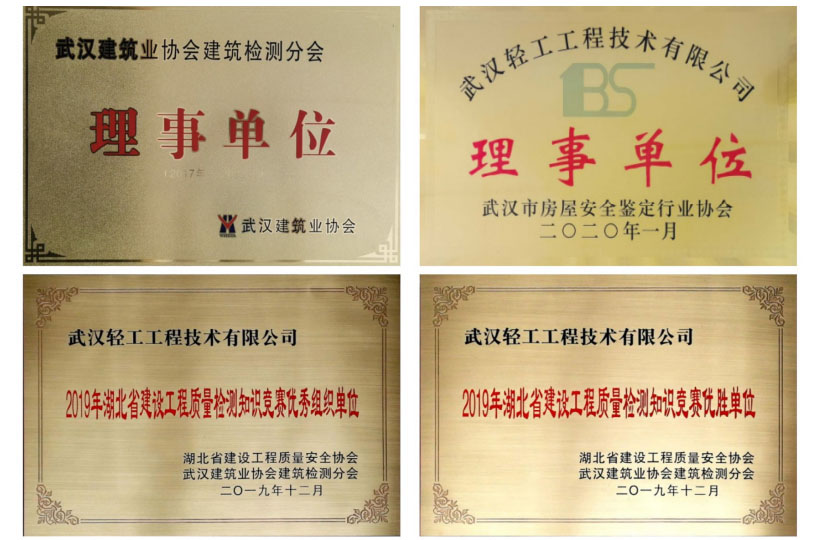 武汉建筑业协会建筑检测分会
理事单位
武汉建筑业协会
武汉轻工工程技术有限公司
BS
理事单位
武汉市房屋安全鉴定行业协会
二〇二〇年一月
武汉轻工工程技术有限公司
2019年湖北省建设工程质量检测知识竞赛优秀组织单位
湖北省建设工程质量安全协会
武汉建筑业协会建筑检测分会
二〇一九年十二月
武汉轻工工程技术有限公司
2019年湖北省建设工程质量检测知识竞赛优胜单位
湖北省建设工程质量安全协会
武汉建筑业协会建筑检测分会
二〇一九年十二月